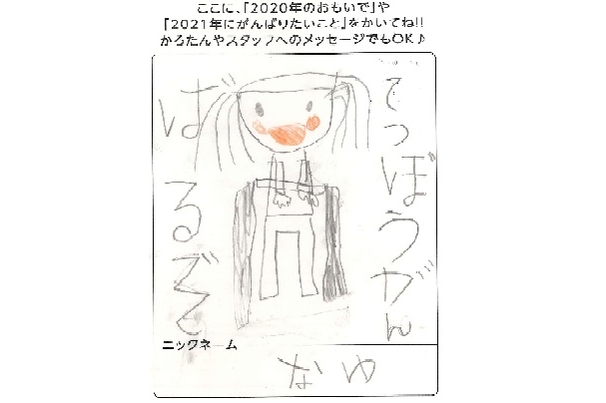 ここに、「2020年のおもいで」や
「2021年にがんばりたいこと」をかいてね!!
かろたんやスタッフへのメッセージでもOK♪
てつぼうがん
ばるぞ
ニックネーム
なゆ